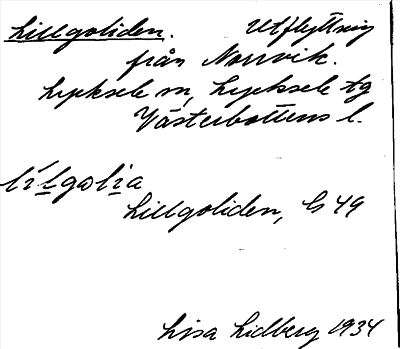 Lillgoliden. Utflyttning
från Norrvik.
Lycksele sn, Lycksele tg
Västerbottens l.
lílgɷlia
Lillgoliden, G 49
Lisa Lidberg 1934